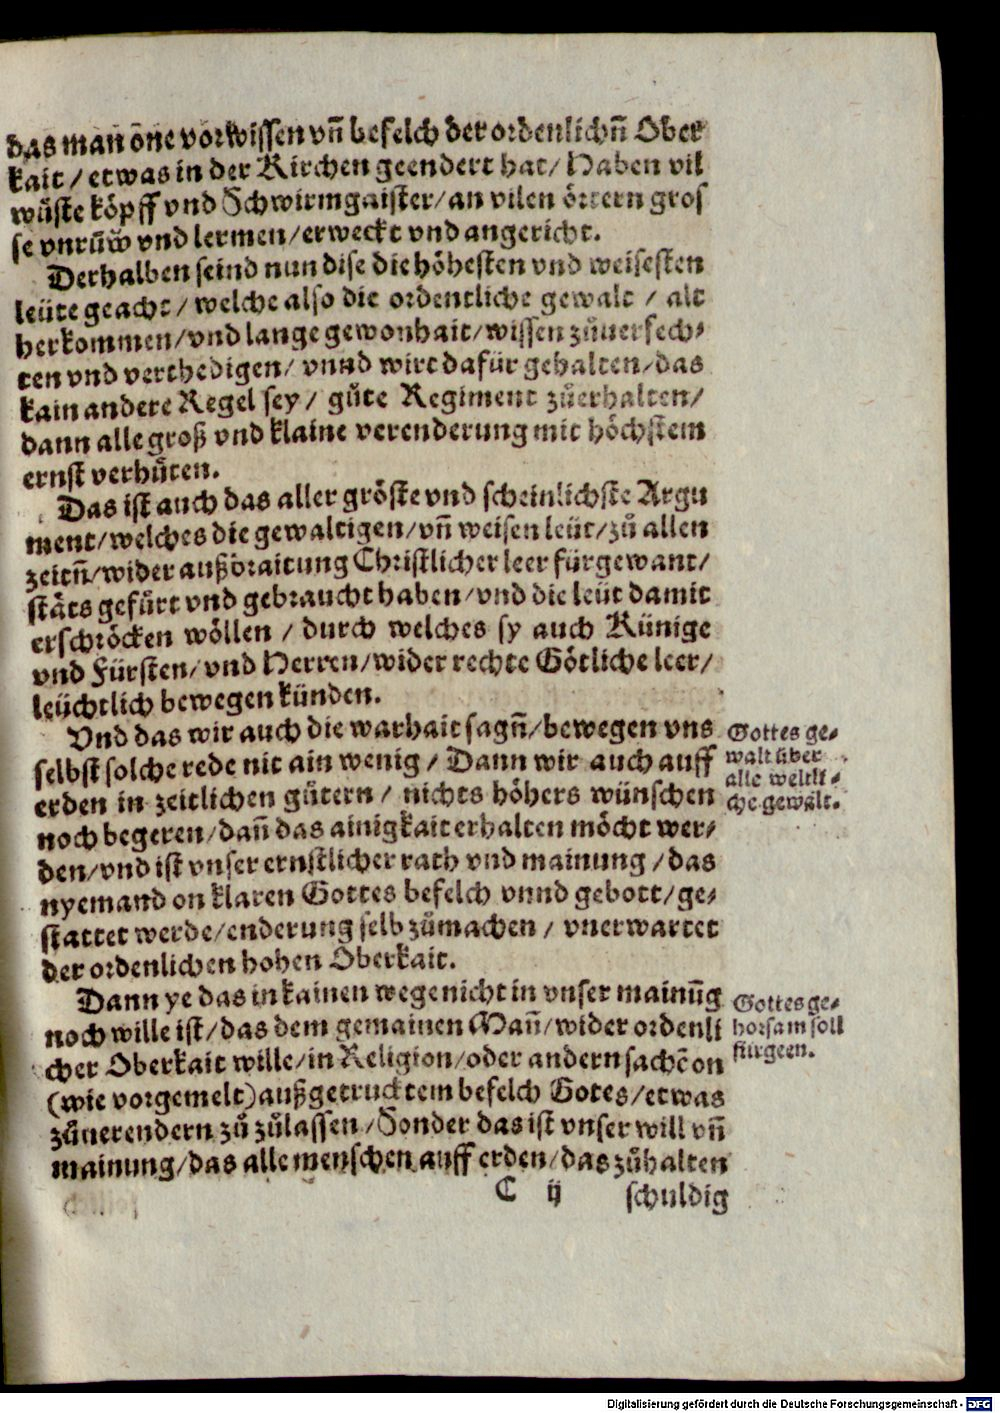 das man one vorwissen vñ befelch der ordenlichñ Ober
kait / etwas in der Kirchen geendert hat / Haben vil
wüste köpff vnd Schwirmgaister / an vilen örtern gros
se vnruͤw vnd lermen / erweckt vnd angericht.
Derhalben seind nun dise die höhesten vnd weisesten
leüte geacht / welche also die ordentliche gewalt / alt
herkommen / vnd lange gewonhait / wissen zůuersech⸗
ten vnd verthedigen / vnnd wirt dafür gehalten / das
kain andere Regel sey / gůte Regiment zůerhalten /
dann alle groß vnd klaine verenderung mit höchstem
ernst verhüten.
Das ist auch das aller gröste vnd scheinlichste Argu
ment / welches die gewaltigen / vñ weisen leüt / zů allen
zeitñ / wider außbraitung Christlicher leer fürgewant /
stäts gefürt vnd gebraucht haben / vnd die leüt damit
erschröcken wöllen / durch welches sy auch Künige
vnd Fürsten / vnd Herren / wider rechte Götliche leer /
leüchtlich bewegen künden.
Vnd das wir auch die warhait sagñ / bewegen vns
selbst solche rede nit ain wenig / Dann wir auch auff
erden in zeitlichen gütern / nichts höhers wünschen
noch begeren / dañ das ainigkait erhalten möcht wer⸗
den / vnd ist vnser ernstlicher rath vnd mainung / das
nyemand on klaren Gottes befelch vnnd gebott / ge⸗
stattet werde / enderung selb zůmachen / vnerwartet
der ordenlichen hohen Oberkait.
Gottes ge⸗
walt über
alle weltli⸗
che gewalt.
Dann ye das in kainen wege nicht in vnser mainũg
noch wille ist / das dem gemainen Mañ / wider ordenli
cher Oberkait wille / in Religion / oder andern sachẽ on
(wie vorgemelt) außgetrucktem befelch Gotes / etwas
zůuerendern zů zůlassen / Sonder das ist vnser will vñ
mainung / das alle menschen auff erden / das zůhalten
Gottes ge⸗
horsam soll
fürgeen.
C ij schuldig
Digitalisierung gefördert durch die Deutsche Forschungsgemeinschaft - DFG